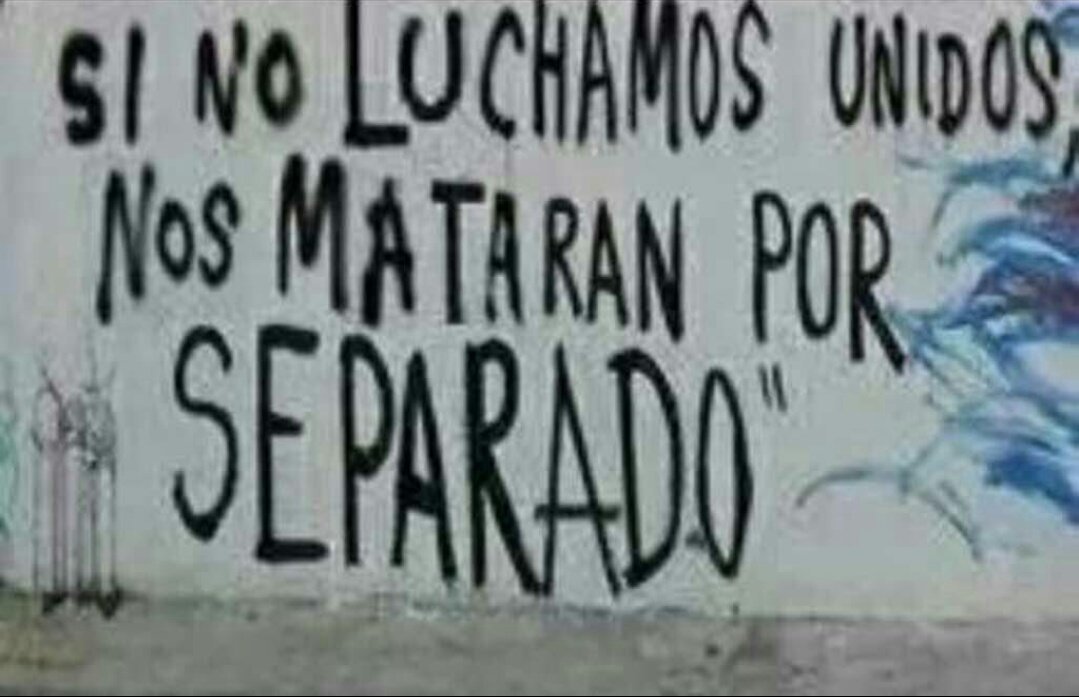 SI NO LUCHAMOS UNIDOS,
NOS MATARAN POR
SEPARADO"